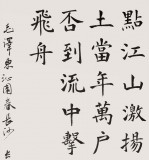 點江山激揚
土當年萬戶
否到流中擊
飛舟
毛澤東沁園春長沙